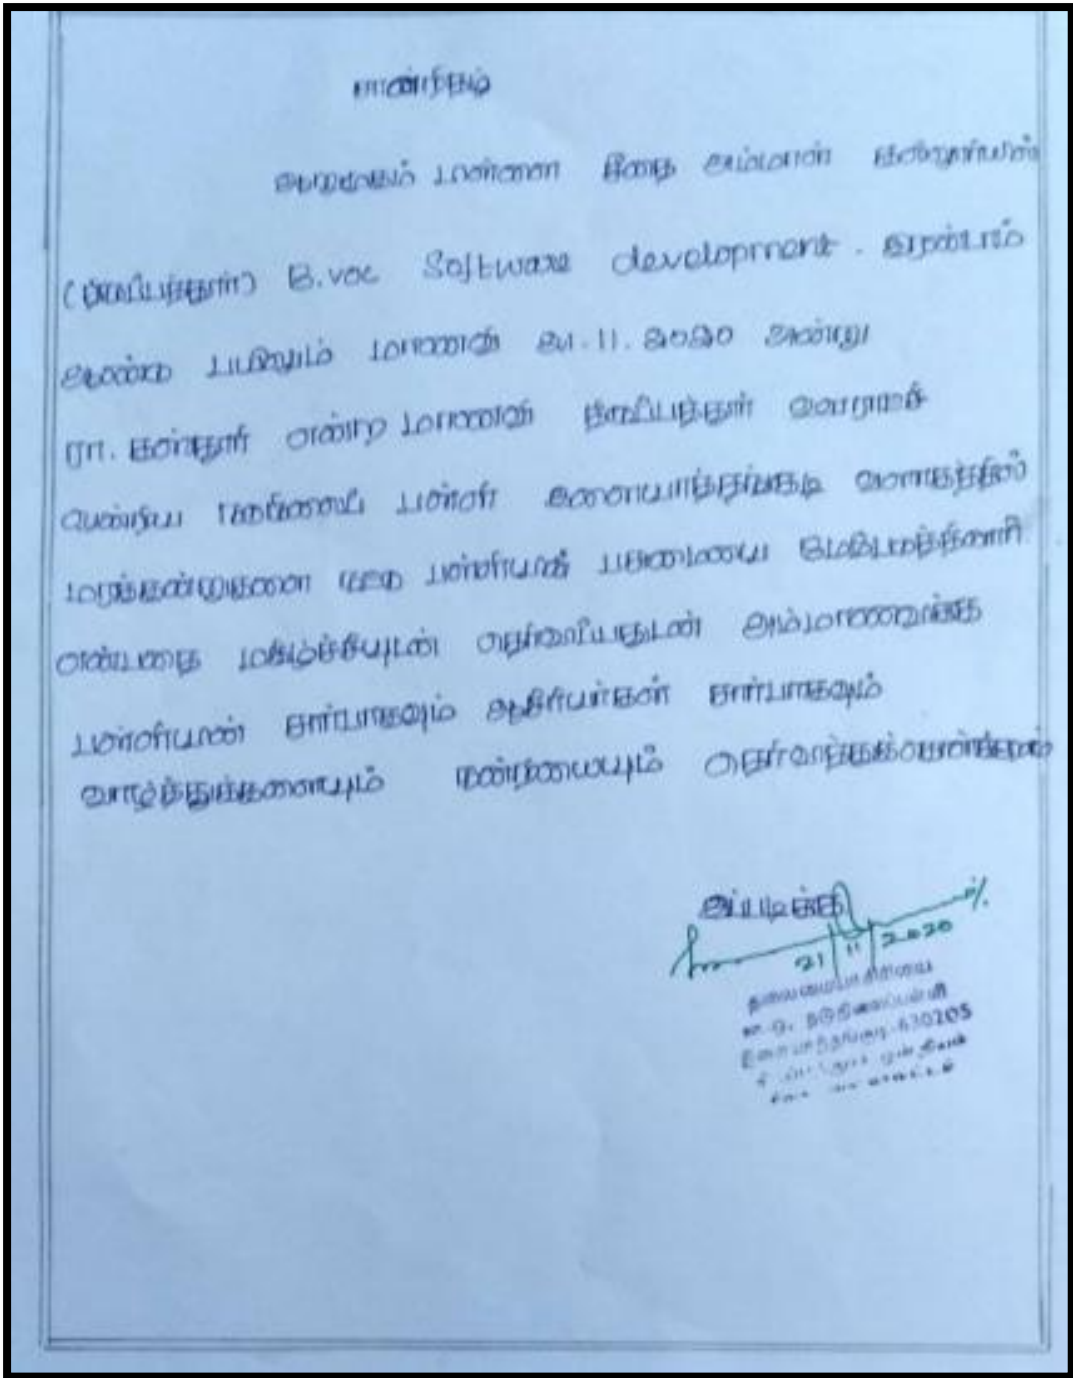 சான்றிதழ்
ஆறுமுகம் பிள்ளை சீதை அம்மாள் கல்லூரியில்
(திருப்பத்தூர்) B.voc Software development. இரண்டாம்
ஆண்டு பயிலும் மாணவி 21.11.2020 அன்று
ரா. என்ற மாணவி திருப்பத்தூர் ஊராட்சி
ஒன்றிய நடுநிலைப் பள்ளி இளையாத்தங்குடி வளாகத்தில்
மரக்கன்றுகளை நட்டு பள்ளியின் பசுமையை மேம்படுத்தினார்
என்பதை மகிழ்ச்சியுடன் தெரிவிப்பதுடன் அம்மாணவிக்கு
பள்ளியின் சார்பாகவும் ஆசிரியர்கள் சார்பாகவும்
வாழ்த்துக்களையும் நன்றியையும் தெரிவித்துக்கொள்கிறேன்
இப்படிக்கு
21/11/2020
தலைமையாசிரியை
ஊ.ஒ. நடுநிலைப்பள்ளி
இளையாத்தங்குடி-630205